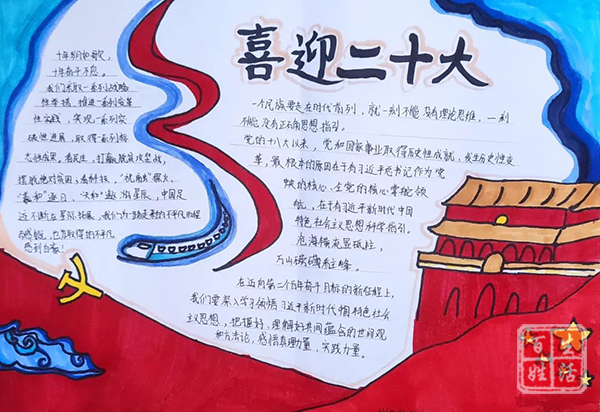 喜迎二十大
十年期如歌,
十年奋斗不息。
我们采取一系列战略
性举措,推进一系列变革
性实践,实现一系列突
破性进展,取得一系列标
志性成果,看民生,打赢脱贫攻坚战,
摆脱绝对贫困;看科技,
逐日、"天和"遨游星辰,中国足
迹不断在星际拓展,我们为一路走来的不平凡而
感慨,也为取得的不平凡
感到自豪!
一个民族要走在时代前列,就一刻不能没有理论思维,一刻
不能没有正确思想指引。
党的十八大以来,党和国家事业取得历史性成就、发生历史性变
革,最根本的原因在于有习近平总书记作为党
中央的核心、全党的核心掌舵领
航,在于有习近平新时代中国
特色社会主义思想科学指引。
沧海横流显砥柱,
万山磅礴看主峰。
在迈向第二个百年奋斗目标的新征程上,
我们要深入学习领悟习近平新时代中国特色社会
主义思想,把握好、理解好其间蕴含的世界观
和方法论,感悟真理力量、实践力量。
百姓生活